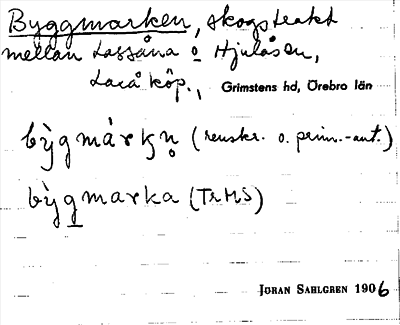 Byggmarken, skogstrakt
mellan Lassåna o Hjulåsen,
Laxå köp., Grimstens hd, Örebro län
bỳgmárkn̥ (renskr. o. prim.-ant.)
bỳgmarka (TrMS)
JÖRAN SAHLGREN 1906